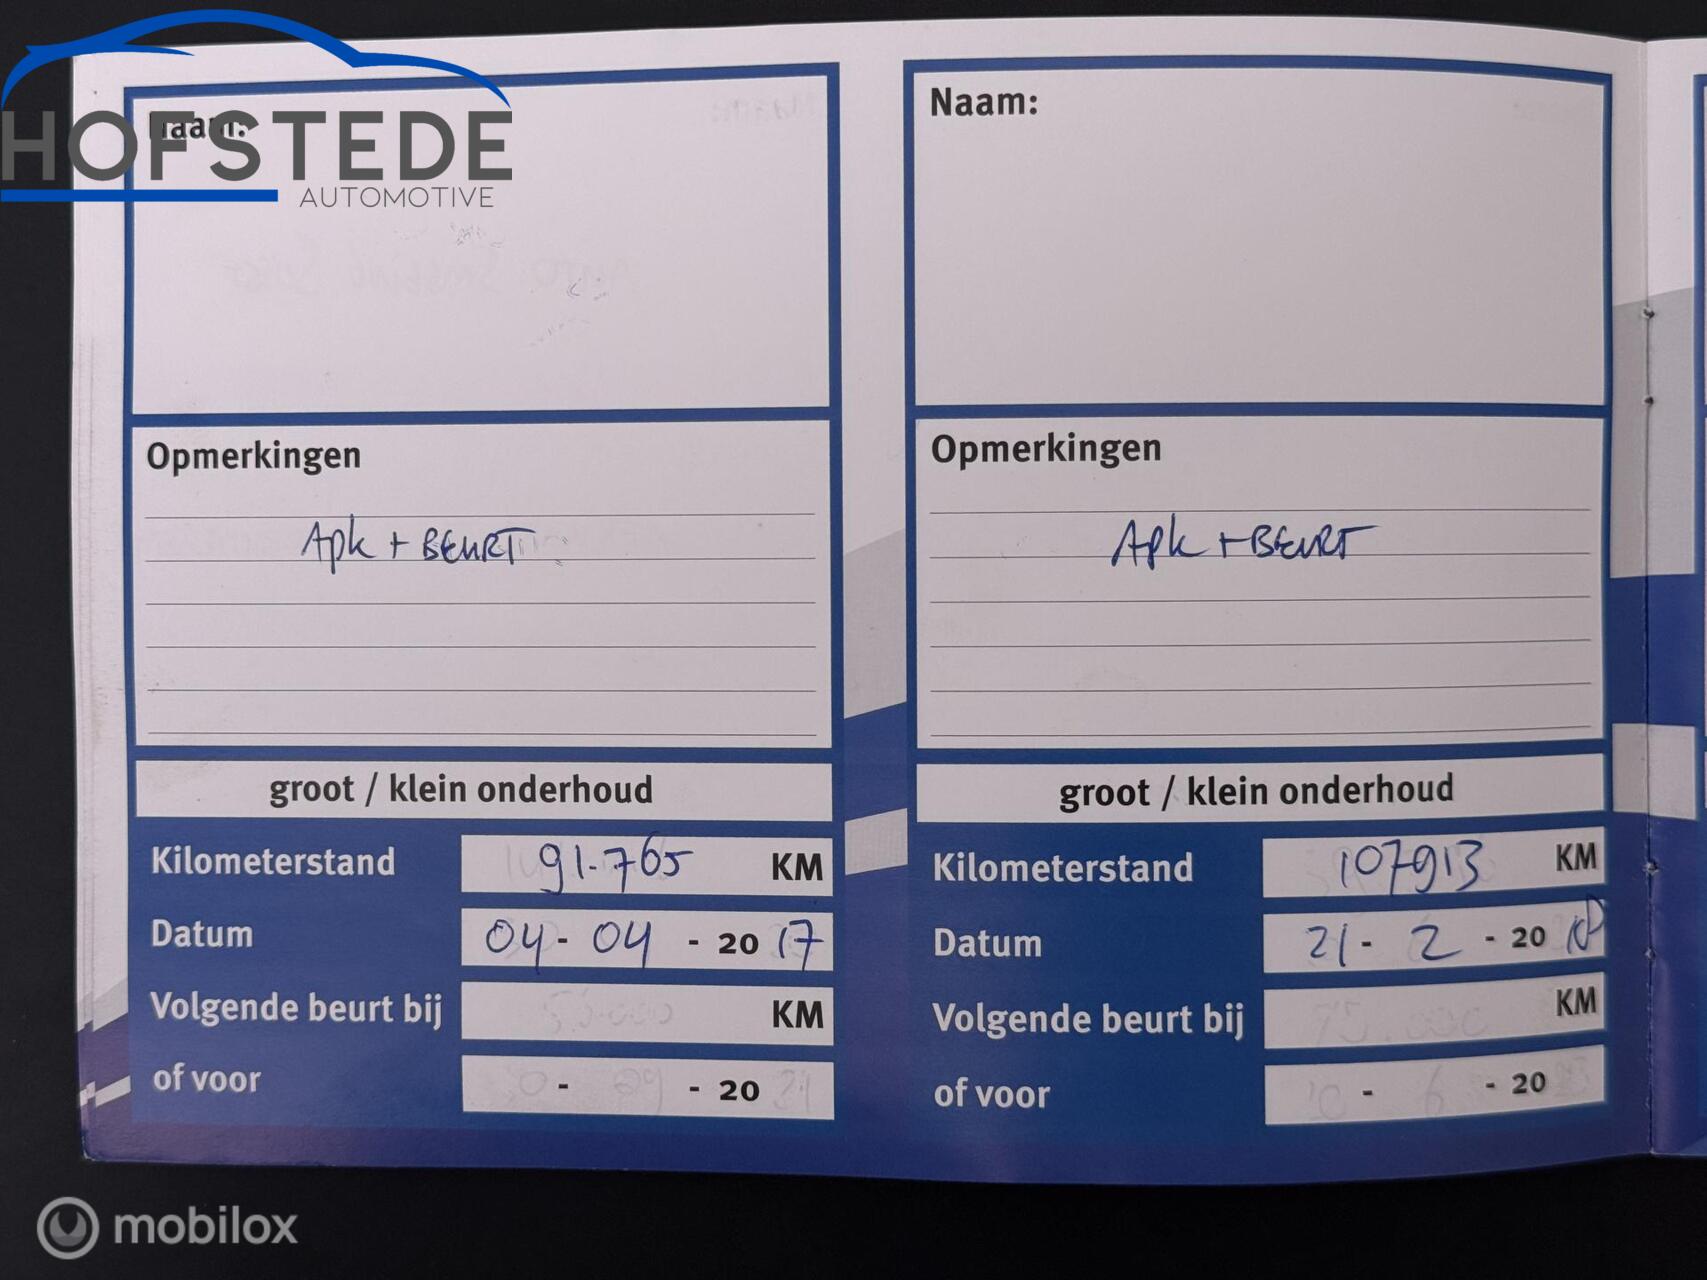 HOFSTEDE
AUTOMOTIVE
Naam:
Opmerkingen
Apk + BEURT
groot / klein onderhoud
Kilometerstand 91.765 KM
Datum 04 - 04 - 20 17
Volgende beurt bij KM
of voor - - 20
Naam:
Opmerkingen
Apk + BEURT
groot / klein onderhoud
Kilometerstand 107913 KM
Datum 21 - 2 - 20 18
Volgende beurt bij KM
of voor - - 20
mobilox